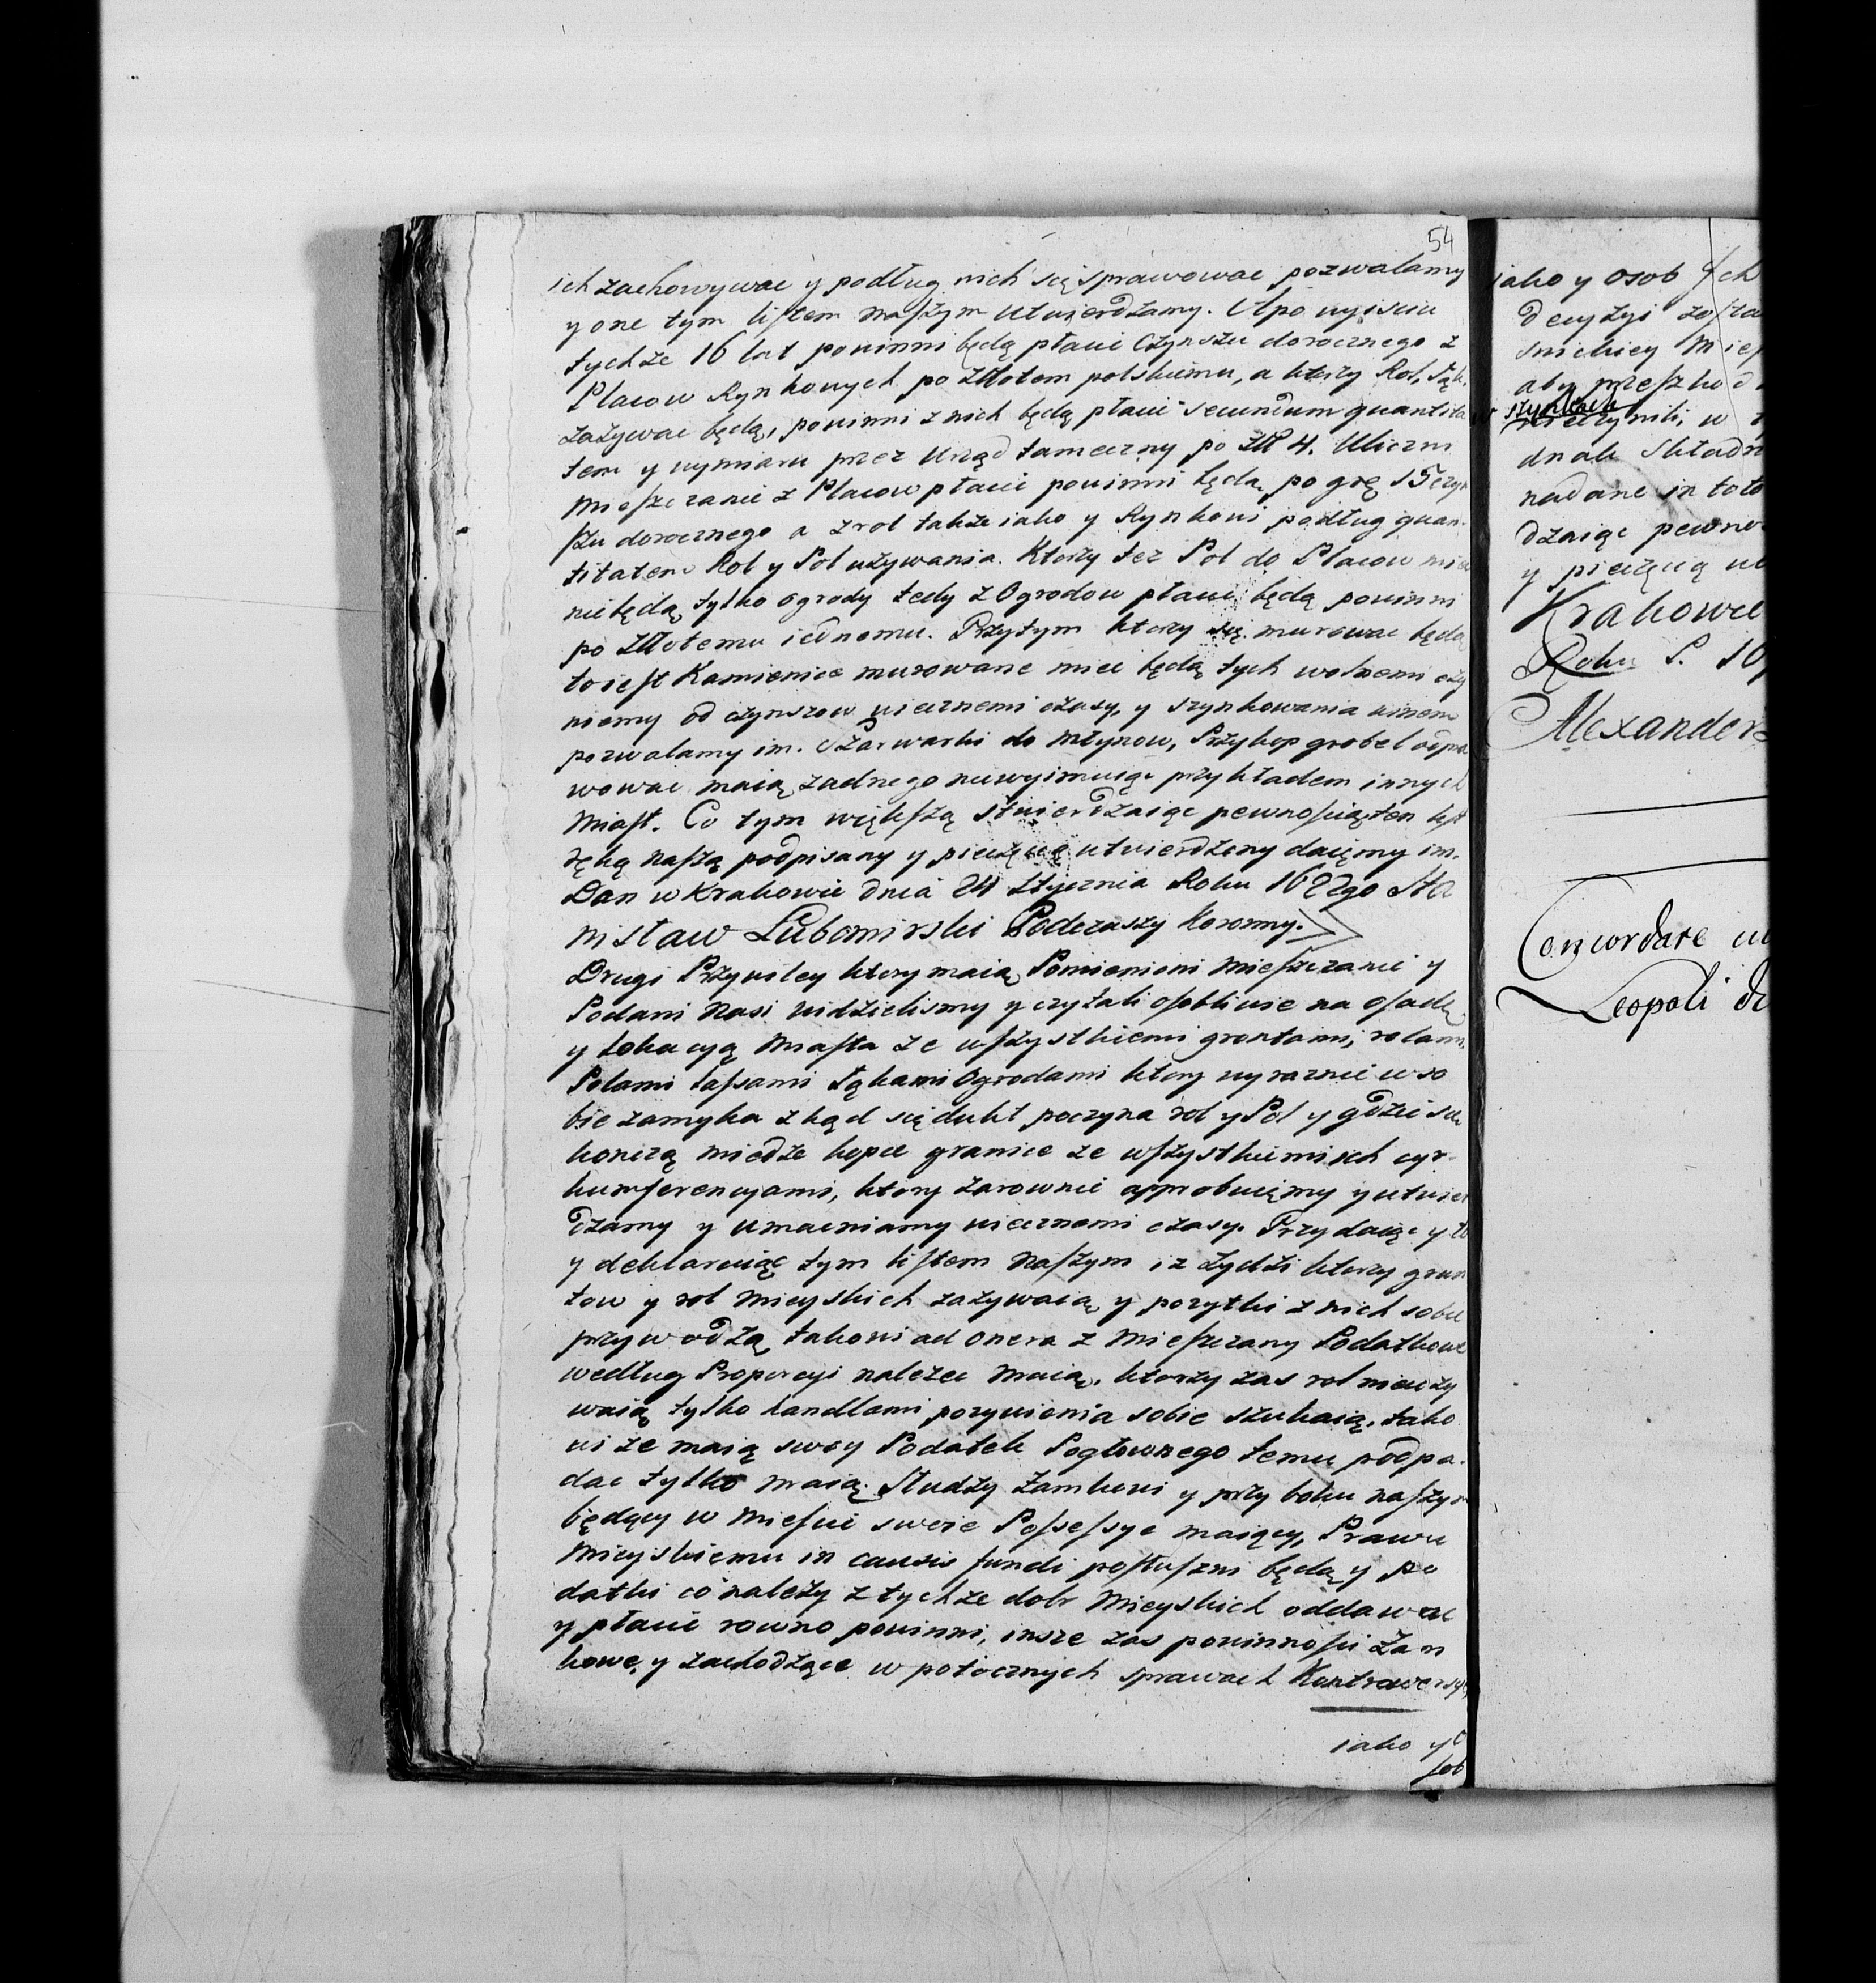 54
ich zachowywac y podług nich się sprawowac pozwalamy
y one tym listem naszym utwierdzamy. A po wyisciu
tychże 16 lat powinni będą płacic Czynszu dorocznego z
Placow Rynkowych po Złłotem polskiemu, a ktorzy Rol, Łąk,
zażywac będą, powinni z nich będą płacic secundum quantita
tem y wymiaru przez Urząd tameczny po Złł 4. Uliczni
Mieszczanie z Placow płacic powinni będą po grę 15 czyn
szu dorocznego a z rol także iako y Rynkowi podług quan-
titatem Rol y Pol używania. Ktorzy też Pol do Placow miec
niebędą, tylko ogrody tedy z Ogrodow płacic będą powinni
po Złłotemu iednomu. Przytym ktorzy się murowac będą
to iest Kamienice murowane miec będą tych wolnemi czy
niemy od czynszow wiecznemi czasy, y szynkowania winem
pozwalamy im. Szarwarki do młynow, Przykop grobel odpra
wowac maią żadnego niewyimuiąc przykładem innych
Miast. Co tym większą stwierdzaiąc pewnością ten list
ręką naszą podpisany y pieczęcią utwierdzony daiemy im.
Dan w Krakowie dnia 24 Stycznia Roku 1622go Sta
nisław Lubomirski Podczaszy Koronny.
Drugi Przywiley ktory maią Pomienioni Mieszczanie y
Podani Nasi widzielismy y czytali osobliwie na osadę
y lokacyą Miasta ze wszystkiemi grontami, rolami
Polami Lassami Łąkami Ogrodami ktory wyraznie w so
bie zamyka zkąd się dukt poczyna rol y Pol y gdzie się
konczą miedze kopce granice ze wszystkiemi ich cyr-
kumferencyami, ktory zarownie approbuiemy y utwier
dzamy y umacniamy wiecznemi czasy. Przydaiąc y to
y deklaruiąc tym listem naszym iz Zydzi ktorzy grun
tow y rol Mieyskich zazywaią y pozytki z nich sobie
przywodzą, takowi ad onera z Mieszczany Podatkowe
według Proporcyi należec maią, ktorzy zas rol nieuzy
waią tylko handlami pozywienia sobie szukaią, tako
wi ze maią swoy Podatek Pogłownego temu podpa.
dac tylko maią. Słudzy Zamkowi y przy boku naszym
będący w Miescie swoie Possessye maiący, Prawu
Mieyskiemu in causis fundi posłuszni będą y po
datki co należy z tychże dobr Mieyskich oddawac
y płacic rowno powinni, insze zas powinnosci Zam
kowe, y zachodzące w potocznych sprawach Kontrowersye,
iako y o
sob
iako y osob
decyzyi zosta
aby przeszkod
szynkach
nieczynili, w
dnak Składn
nadane in toto
dzaiąc pewno
y pieczęcią
Krakowie
Roku P.
Alexander
Concordare
Leopoli